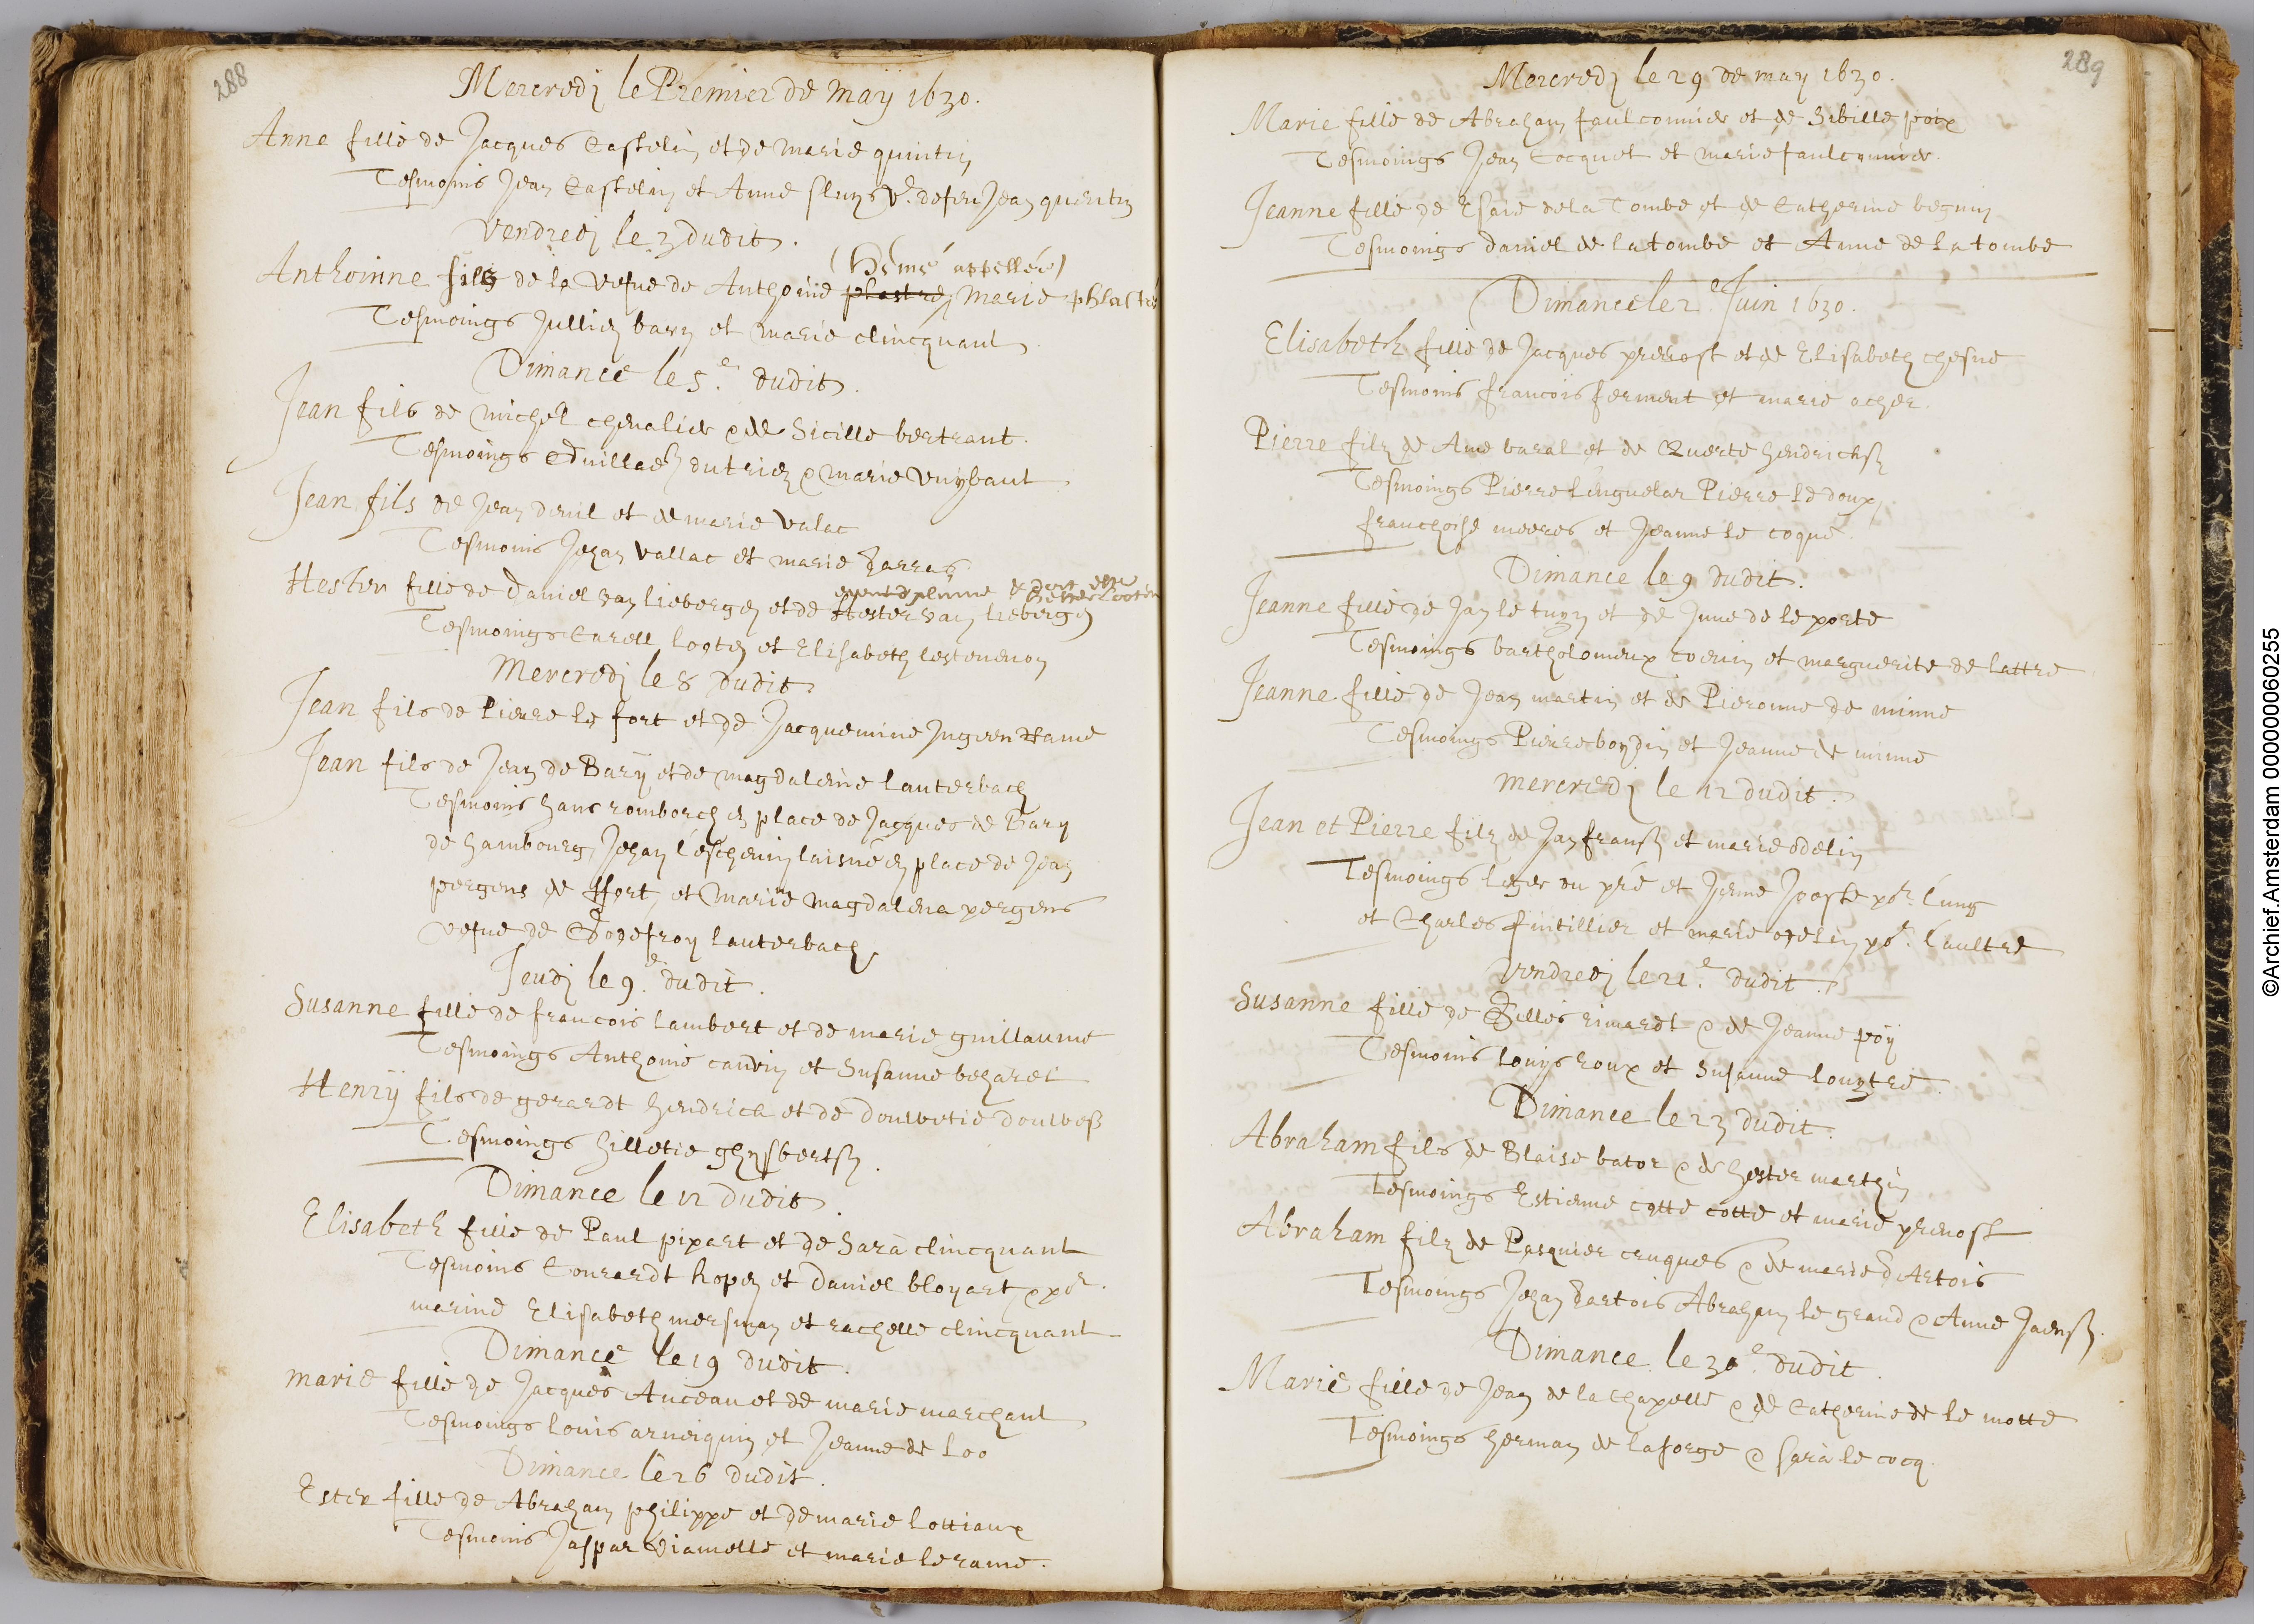 288
Mercredj le Premier de maÿ 1630.
Anne fille de Jacques Castelin et de marie quintin
Tesmoins Jean Castelin et Anne Sluys Ve. de feu Jean quintin
Vendredj le 3 dudit.
(Heme appellée)
Anthoinne filz de la vefue de Anthoine Marie
Tesmoings Jullien bary et marie clincquant
Dimance le 5.e dudit.
Jean fils de michel chevalier e de Sicille bertrant.
Tesmoings dutriez e marie
Jean fils de Jean deuil et de marie valac
Tesmoins Jehan Vallac et marie Farras
Hester fille de Daniel van liebergen et de Hester van liebergen
Tesmoings Carell looten et Elisabeth lestevenon
Mercredj le 8 dudit
Jean fils de Pierre le fort et de Jacquemine
Jean fils de Jean de Barÿ et de magdaleine lauterbach
Tesmoins hans romborch en place de Jacques de Bary
de hambourg, Jehan l'eschevin laisné en place de Jean
pergens de et Marie magdalena pergens
vefue de Godefroy lauterbach
Jeudj le 9.e dudit.
Susanne fille de francois lambert et de marie guillaume
Tesmoings Anthoine caudin et Susanne
Henrÿ fils de gerardt hendrick et de
Tesmoings hilletie ghysbertsz.
Dimance le 12 dudit
Elisabeth fille de Paul pipart et de Sara clincquant
Tesmoins Conrardt hopen et Daniel bloyart e pour
marine Elisabeth mersman et rachelle clincquant
Dimance le 19 dudit.
marie fille de Jacques Anceau et de marie marchant
Tesmoings louis et Jeanne de loo
Dimance le 26 dudit.
Ester fille de Abraham philippe et de marie lottiaux
Tesmoins Jaspar et marie le rame.
289
Mercredj le 29 de may 1630.
Marie fille de Abraham faulconnier et de Sibille poix
Tesmoings Jean Cocquet et marie faulconnier.
Jeanne fille de Esaie de la Tombe et de Catherine beguin
Tesmoings daniel de la tombe et Anne de la tombe
Dimance le 2.e Juin 1630.
Elisabeth fille de Jacques prevost et de Elisabeth chesne
Tesmoins francois ferment et marie acher.
Pierre filz de Ame baral et de hendrichsz
Tesmoings Pierre Pierre le doux,
franchoise meeres et Jeanne le coque.
Dimance le 9 dudit.
Jeanne fille de Jan le et de Jnne de le porte
Tesmoings bartholomeux et marguerite de lattre
Jeanne fille de Jean martin et de Pieronne de minne
Tesmoings Pierre boydin et Jeanne de minne
mercredj le 12 dudit.
Jean et Pierre filz de Jan fransz et marie odelin
Tesmoings leger du pré et Jenne Jooste pour l'ung
et Charles et marie odelin pour l'aultre
Vendredj le 21.e dudit.
Susanne fille de Gilles rimardt e de Jeanne poÿ
Tesmoins louÿs roux et Susanne
Dimance le 23 dudit.
Abraham fils de Blaise bator e de hester marthin
Tesmoings Estienne cotte cotte et marie prevost
Abraham filz de Pasquier cruques e de marie d'Artois
Tesmoings Jehan dartois Abraham le grand e Anne Jaensz.
Dimance le 30.e dudit.
Marie fille de Jean de la chapelle e de Catherine de le motte
Tesmoings herman de la forge e Sara le cocq.
©Archief.Amsterdam 000000060255